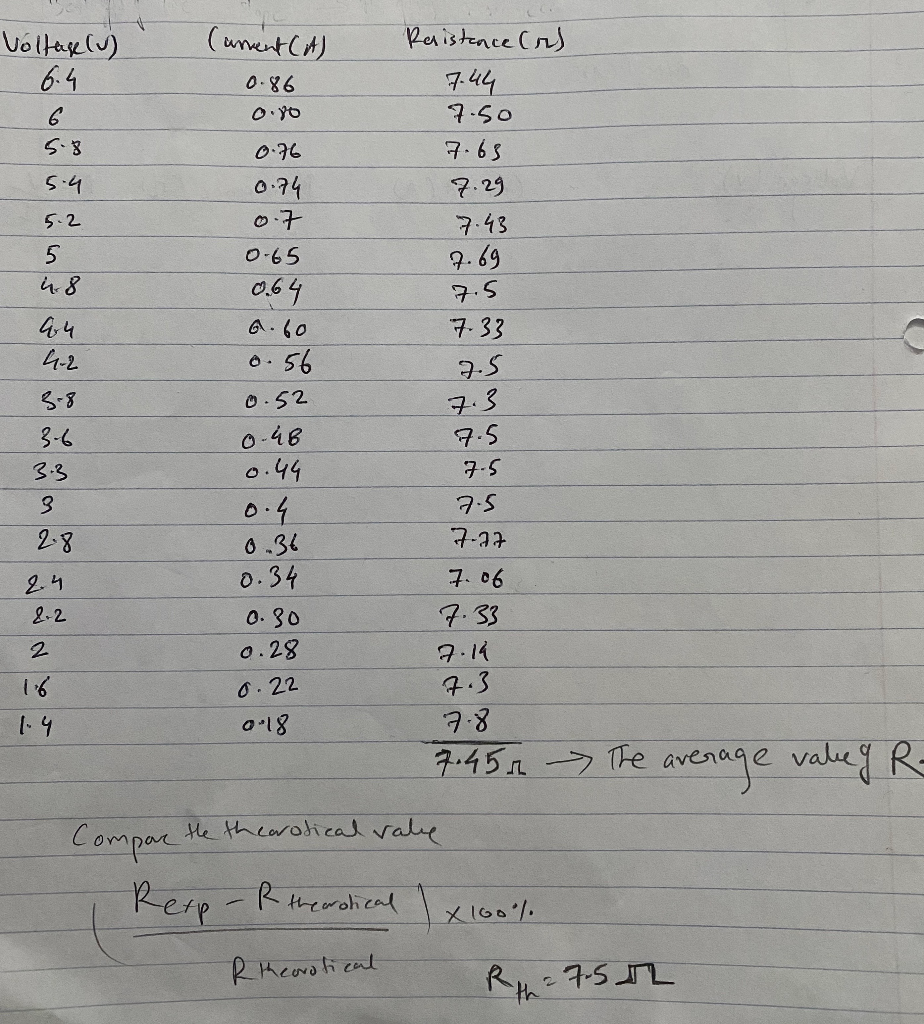 Voltage(v) Current(A) Resistence(Ω)
6.4 0.86 7.44
6 0.80 7.50
5.8 0.76 7.63
5.4 0.74 7.29
5.2 0.7 7.43
5 0.65 7.69
4.8 0.64 7.5
4.4 0.60 7.33
4.2 0.56 7.5
3.8 0.52 7.3
3.6 0.48 7.5
3.3 0.44 7.5
3 0.4 7.5
2.8 0.36 7.77
2.4 0.34 7.06
2.2 0.30 7.33
2 0.28 7.14
1.6 0.22 7.3
1.4 0.18 7.8
7.45Ω → The average value of R.
Compare the thearotical value
( Rexp - R thearotical ) x100%
R thearotical
Rth = 7.5 Ω